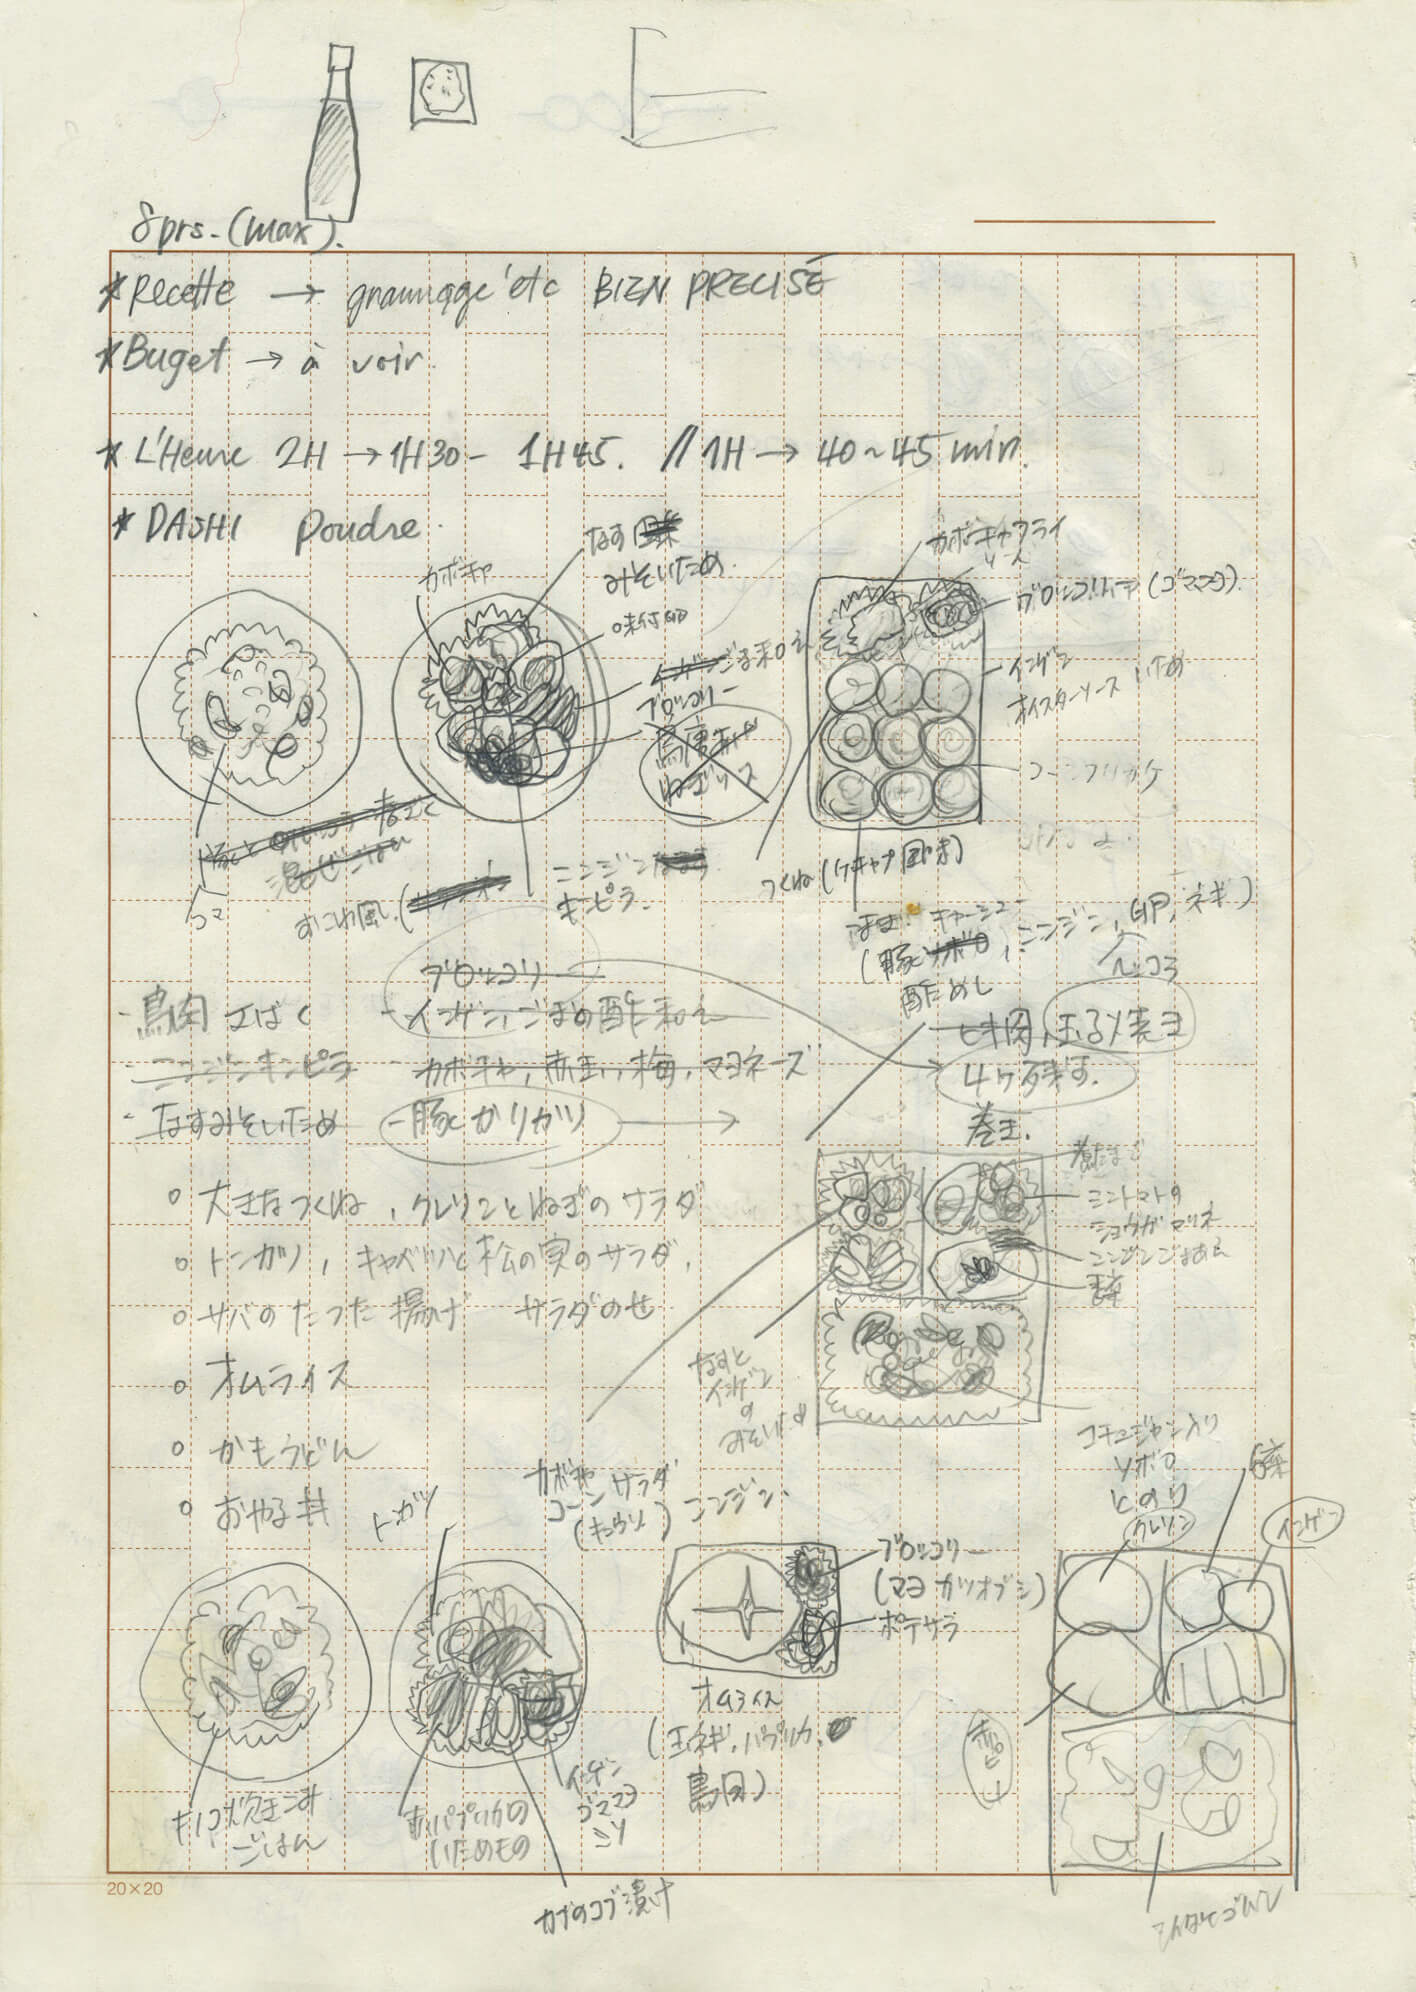 8prs.(max).
*Recette → grammage etc BIEN PRECISÉ
*Buget → à voir
*L'Heure 2H → 1H30 - 1H45. // 1H → 40~45 min.
*DASHI Poudre.
カボチャ
なす
みそいため
味付卵
ごま和え
ブロッコリー
カボチャフライ
ソース
(ゴママヨ)
インゲン
オイスターソース いため
コマ
ニンジン
キンピラ
つくね(ケチャプ風味)
(豚, ニンジン, 卵, ネギ)
酢めし
ブロッコリー
- 鳥肉
- インゲン, ごまの酢和え
- ニンジンキンピラ
- カボチャ, 赤玉, 梅, マヨネーズ
4ケ残す.
- なすみそいため
- 豚カリカリ →
巻き.
○ 大きなつくね, クレソンとねぎのサラダ
○ トンカツ, キャベツと松の実のサラダ.
○ サバのたつた揚げ サラダのせ
○ オムライス
○ かもうどん
○ おやこ丼
ミントマトの
ショウガマリネ
ニンジンごまあえ
なすと
インゲン
の
みそいため
コチュジャン入り
ソボロ
とのり
クレソン
インゲン
トンカツ
カボチャサラダ
コーン
(キュウリ) ニンジン.
ブロッコリー
(マヨ カツオブシ)
ポテサラ
オムライス
(玉ネギ, パプリカ,
鳥肉)
キノコ炊きこみ
ごはん
赤パプリカの
いためもの
インゲン
ゴママヨ
カブのコブ漬け
20×20